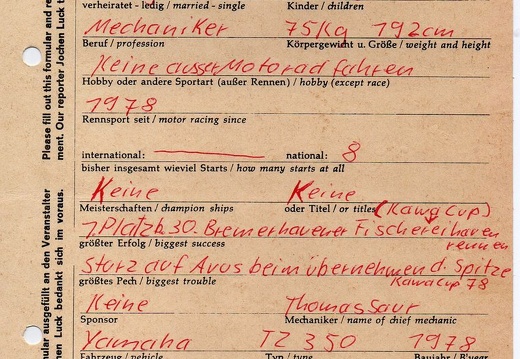 verheiratet - ledig / married - single Kinder / children
Mechaniker 75Kg 192cm
Beruf / profession Körpergewicht u. Größe / weight and height
Keine ausser Motorad fahren
Hobby oder andere Sportart (außer Rennen) / hobby (except race)
1978
Rennsport seit / motor racing since
international: national: 8
bisher insgesamt wieviel Starts / how many starts at all
Keine Keine
Meisterschaften / champion ships oder Titel / or titles (Kawa Cup)
1.Platz b. 30. Bremerhavener Fischereihaven
rennen
größter Erfolg / biggest success
Sturz auf Avus beim übernehmen d. Spitze
KawaCup 78
größtes Pech / biggest trouble
Keine Thomas Saur
Sponsor Mechaniker / name of chief mechanic
Yamaha TZ 350 1978
Fahrzeug / vehicle Typ / type Baujahr / B'year
Please fill out this formular and re
ment. Our reporter Jochen Luck t
ular ausgefüllt an den Veranstalter
hen Luck bedankt sich im voraus.